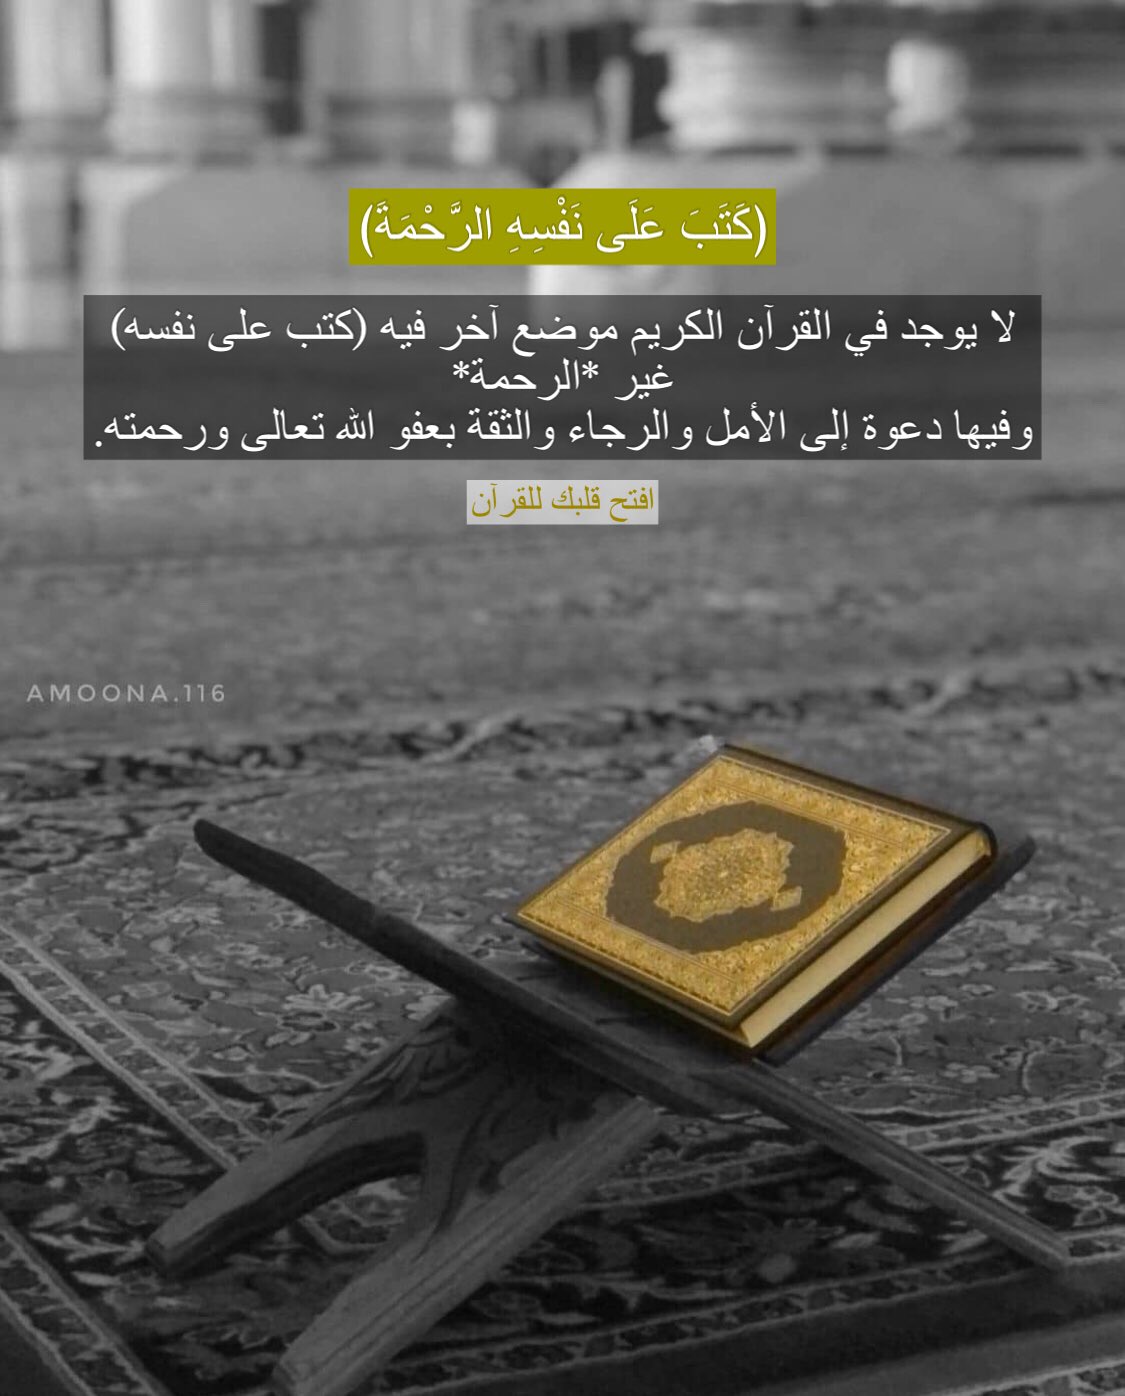 (كَتَبَ عَلَى نَفْسِهِ الرَّحْمَةَ)
لا يوجد في القرآن الكريم موضع آخر فيه (كتب على نفسه)
غير *الرحمة*
وفيها دعوة إلى الأمل والرجاء والثقة بعفو الله تعالى ورحمته.
افتح قلبك للقرآن
AMOONA.116